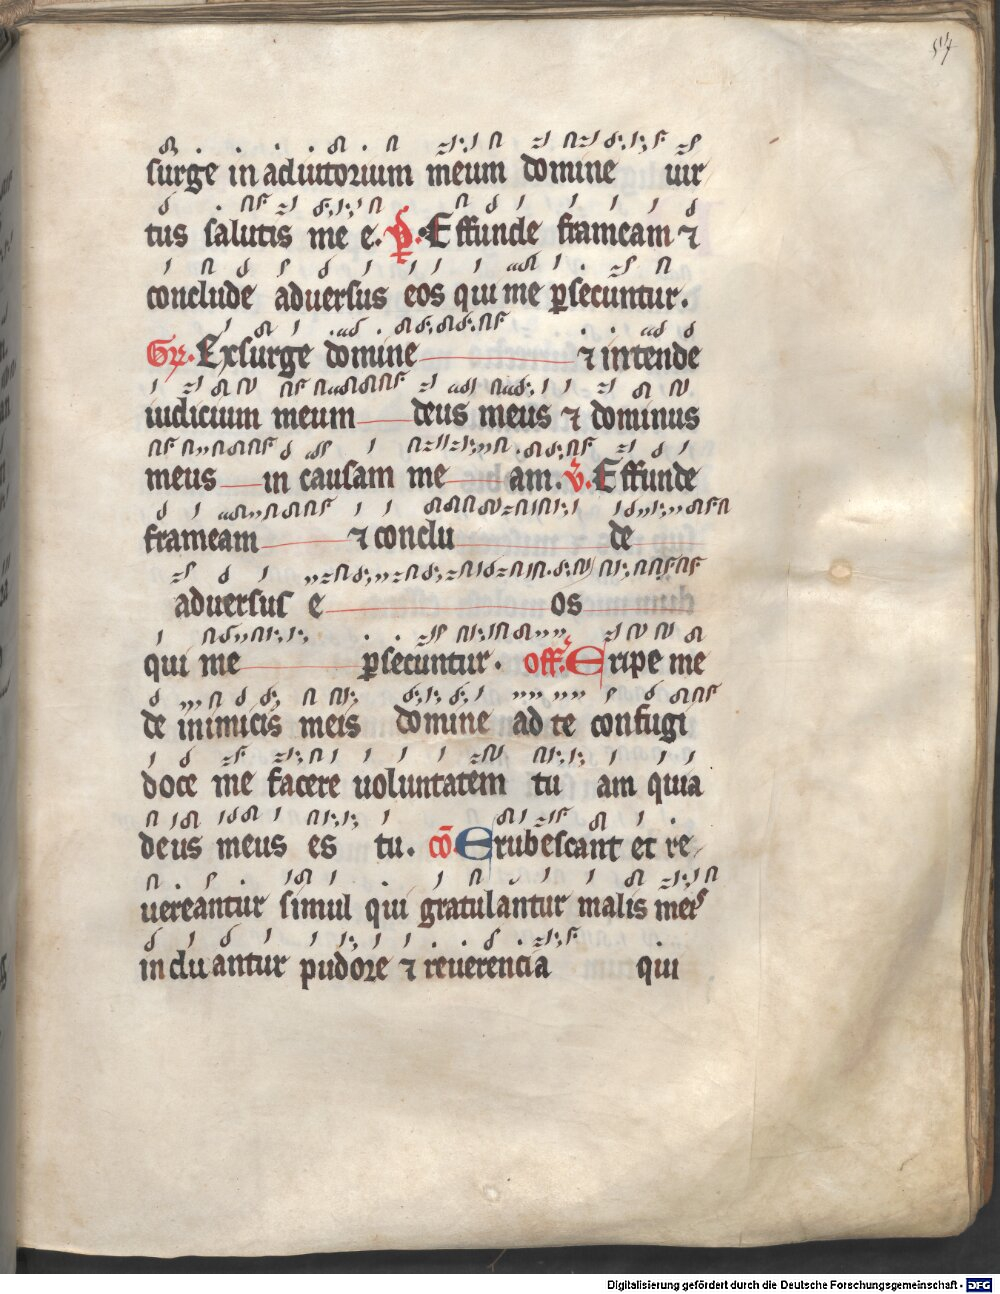 54
surge in adiutorium meum domine uir
tus salutis me e. Ps. Effunde frameam ⁊
conclude aduersus eos qui me ꝑsecuntur.
Gr. Exsurge domine ⁊ intende
iudicium meum deus meus ⁊ dominus
meus in causam me am. V. Effunde
frameam ⁊ conclu de
aduersus e os
qui me ꝑsecuntur. off. Eripe me
de inimicis meis domine ad te confugi
doce me facere uoluntatem tu am quia
deus meus es tu. cō Erubescant et re
uereantur simul qui gratulantur malis meis
induantur pudore ⁊ reuerencia qui
Digitalisierung gefördert durch die Deutsche Forschungsgemeinschaft - DFG